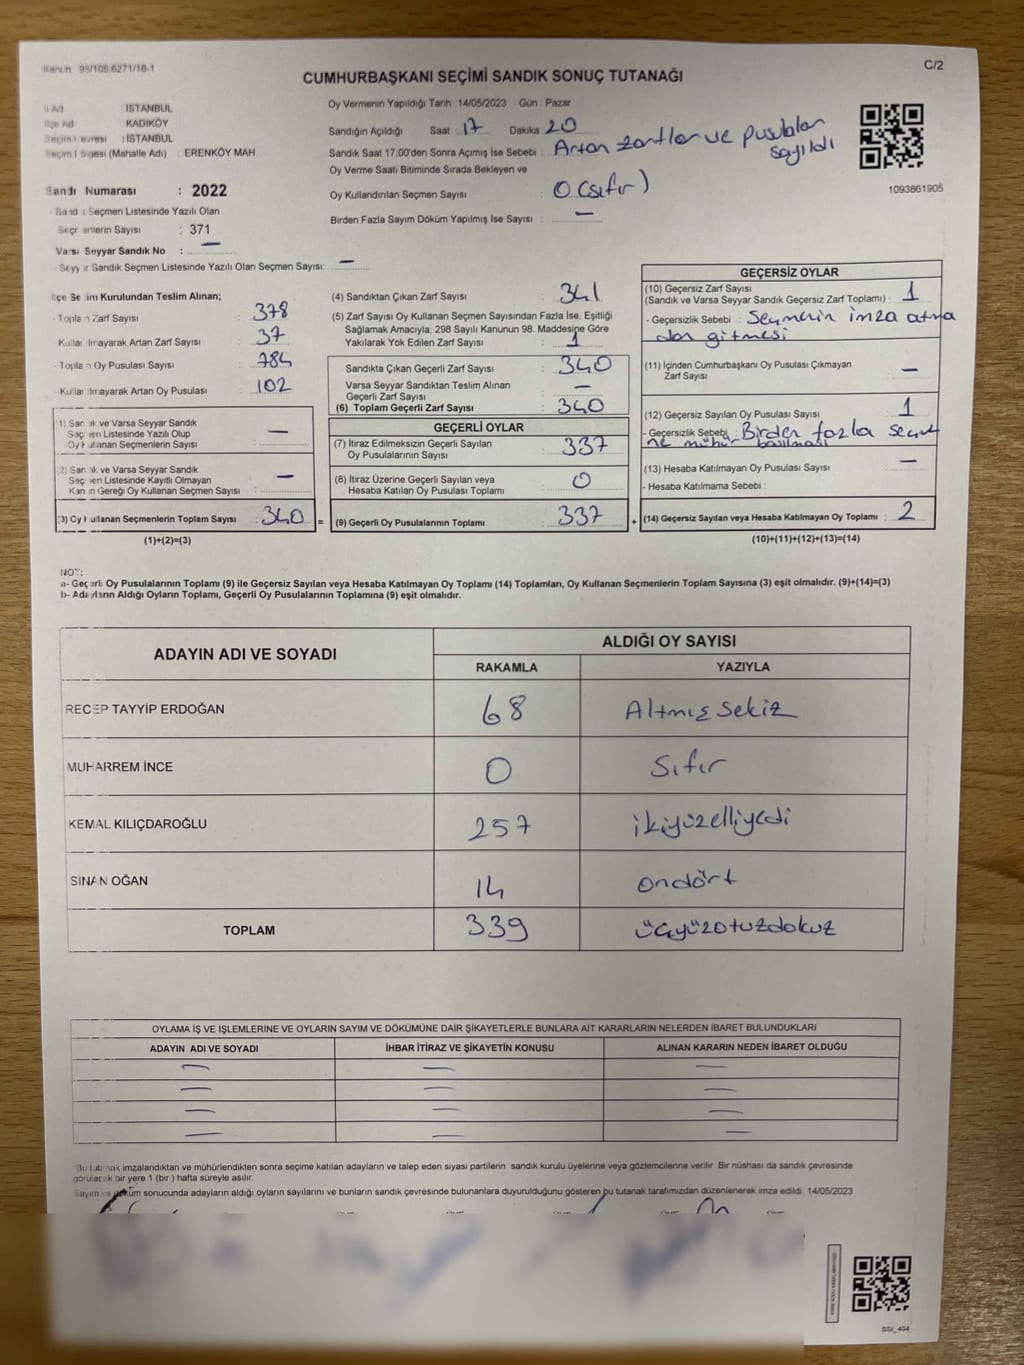 Kanun: 98/106:6271/18-1
C/2
CUMHURBAŞKANI SEÇİMİ SANDIK SONUÇ TUTANAĞI
İl Adı : İSTANBUL
İlçe Adı : KADIKÖY
Seçim Çevresi : İSTANBUL
Seçim Bölgesi (Mahalle Adı) : ERENKÖY MAH
Sandık Numarası : 2022
Sandık Seçmen Listesinde Yazılı Olan
Seçmenlerin Sayısı : 371
Varsa Seyyar Sandık No : —
Seyyar Sandık Seçmen Listesinde Yazılı Olan Seçmen Sayısı: —
Oy Vermenin Yapıldığı Tarih 14/05/2023 Gün : Pazar
Sandığın Açıldığı Saat 17 Dakika 20
Sandık Saat 17:00'den Sonra Açımış İse Sebebi : Artan zarflar ve pusulalar sayıldı
Oy Verme Saati Bitiminde Sırada Bekleyen ve
Oy Kullandırılan Seçmen Sayısı : 0 (sıfır)
Birden Fazla Sayım Döküm Yapılmış İse Sayısı : —
1093861905
İlçe Seçim Kurulundan Teslim Alınan;
- Toplam Zarf Sayısı : 378
- Kullanılmayarak Artan Zarf Sayısı : 37
- Toplam Oy Pusulası Sayısı : 784
- Kullanılmayarak Artan Oy Pusulası : 102
(1) Sandık ve Varsa Seyyar Sandık
Seçmen Listesinde Yazılı Olup
Oy Kullanan Seçmenlerin Sayısı : —
(2) Sandık ve Varsa Seyyar Sandık
Seçmen Listesinde Kayıtlı Olmayan
Kanun Gereği Oy Kullanan Seçmen Sayısı : —
(3) Oy Kullanan Seçmenlerin Toplam Sayısı : 340 =
(1)+(2)=(3)
(4) Sandıktan Çıkan Zarf Sayısı : 341
(5) Zarf Sayısı Oy Kullanan Seçmen Sayısından Fazla İse, Eşitliği
Sağlamak Amacıyla; 298 Sayılı Kanunun 98. Maddesine Göre
Yakılarak Yok Edilen Zarf Sayısı : 1
Sandıkta Çıkan Geçerli Zarf Sayısı : 340
Varsa Seyyar Sandıktan Teslim Alınan
Geçerli Zarf Sayısı : —
(6) Toplam Geçerli Zarf Sayısı : 340
GEÇERLİ OYLAR
(7) İtiraz Edilmeksizin Geçerli Sayılan
Oy Pusulalarının Sayısı : 337
(8) İtiraz Üzerine Geçerli Sayılan veya
Hesaba Katılan Oy Pusulası Toplamı : 0
(9) Geçerli Oy Pusulalarının Toplamı : 337 +
GEÇERSİZ OYLAR
(10) Geçersiz Zarf Sayısı
(Sandık ve Varsa Seyyar Sandık Geçersiz Zarf Toplamı) : 1
- Geçersizlik Sebebi : Seçmenin imza atma
dan gitmesi
(11) İçinden Cumhurbaşkanı Oy Pusulası Çıkmayan
Zarf Sayısı : —
(12) Geçersiz Sayılan Oy Pusulası Sayısı : 1
- Geçersizlik Sebebi : Birden fazla seçme
ne mühür basılması
(13) Hesaba Katılmayan Oy Pusulası Sayısı : —
- Hesaba Katılmama Sebebi :
(14) Geçersiz Sayılan veya Hesaba Katılmayan Oy Toplamı : 2
(10)+(11)+(12)+(13)=(14)
NOT:
a- Geçerli Oy Pusulalarının Toplamı (9) ile Geçersiz Sayılan veya Hesaba Katılmayan Oy Toplamı (14) Toplamları, Oy Kullanan Seçmenlerin Toplam Sayısına (3) eşit olmalıdır. (9)+(14)=(3)
b- Adayların Aldığı Oyların Toplamı, Geçerli Oy Pusulalarının Toplamına (9) eşit olmalıdır.
ADAYIN ADI VE SOYADI
ALDIĞI OY SAYISI
RAKAMLA YAZIYLA
RECEP TAYYİP ERDOĞAN 68 Altmış sekiz
MUHARREM İNCE 0 Sıfır
KEMAL KILIÇDAROĞLU 257 ikiyüzelliyedi
SİNAN OĞAN 14 ondört
TOPLAM 339 üçyüzotuzdokuz
OYLAMA İŞ VE İŞLEMLERİNE VE OYLARIN SAYIM VE DÖKÜMÜNE DAİR ŞİKAYETLERLE BUNLARA AİT KARARLARIN NELERDEN İBARET BULUNDUKLARI
ADAYIN ADI VE SOYADI İHBAR İTİRAZ VE ŞİKAYETİN KONUSU ALINAN KARARIN NEDEN İBARET OLDUĞU
— — —
— — —
— — —
— — —
Bu tutanak imzalandıktan ve mühürlendikten sonra seçime katılan adayların ve talep eden siyasi partilerin sandık kurulu üyelerine veya gözlemcilerine verilir. Bir nüshası da sandık çevresinde
görülecek bir yere 1 (bir) hafta süreyle asılır.
Sayım ve döküm sonucunda adayların aldığı oyların sayılarını ve bunların sandık çevresinde bulunanlara duyurulduğunu gösteren bu tutanak tarafımızdan düzenlenerek imza edildi. 14/05/2023
SSI_454